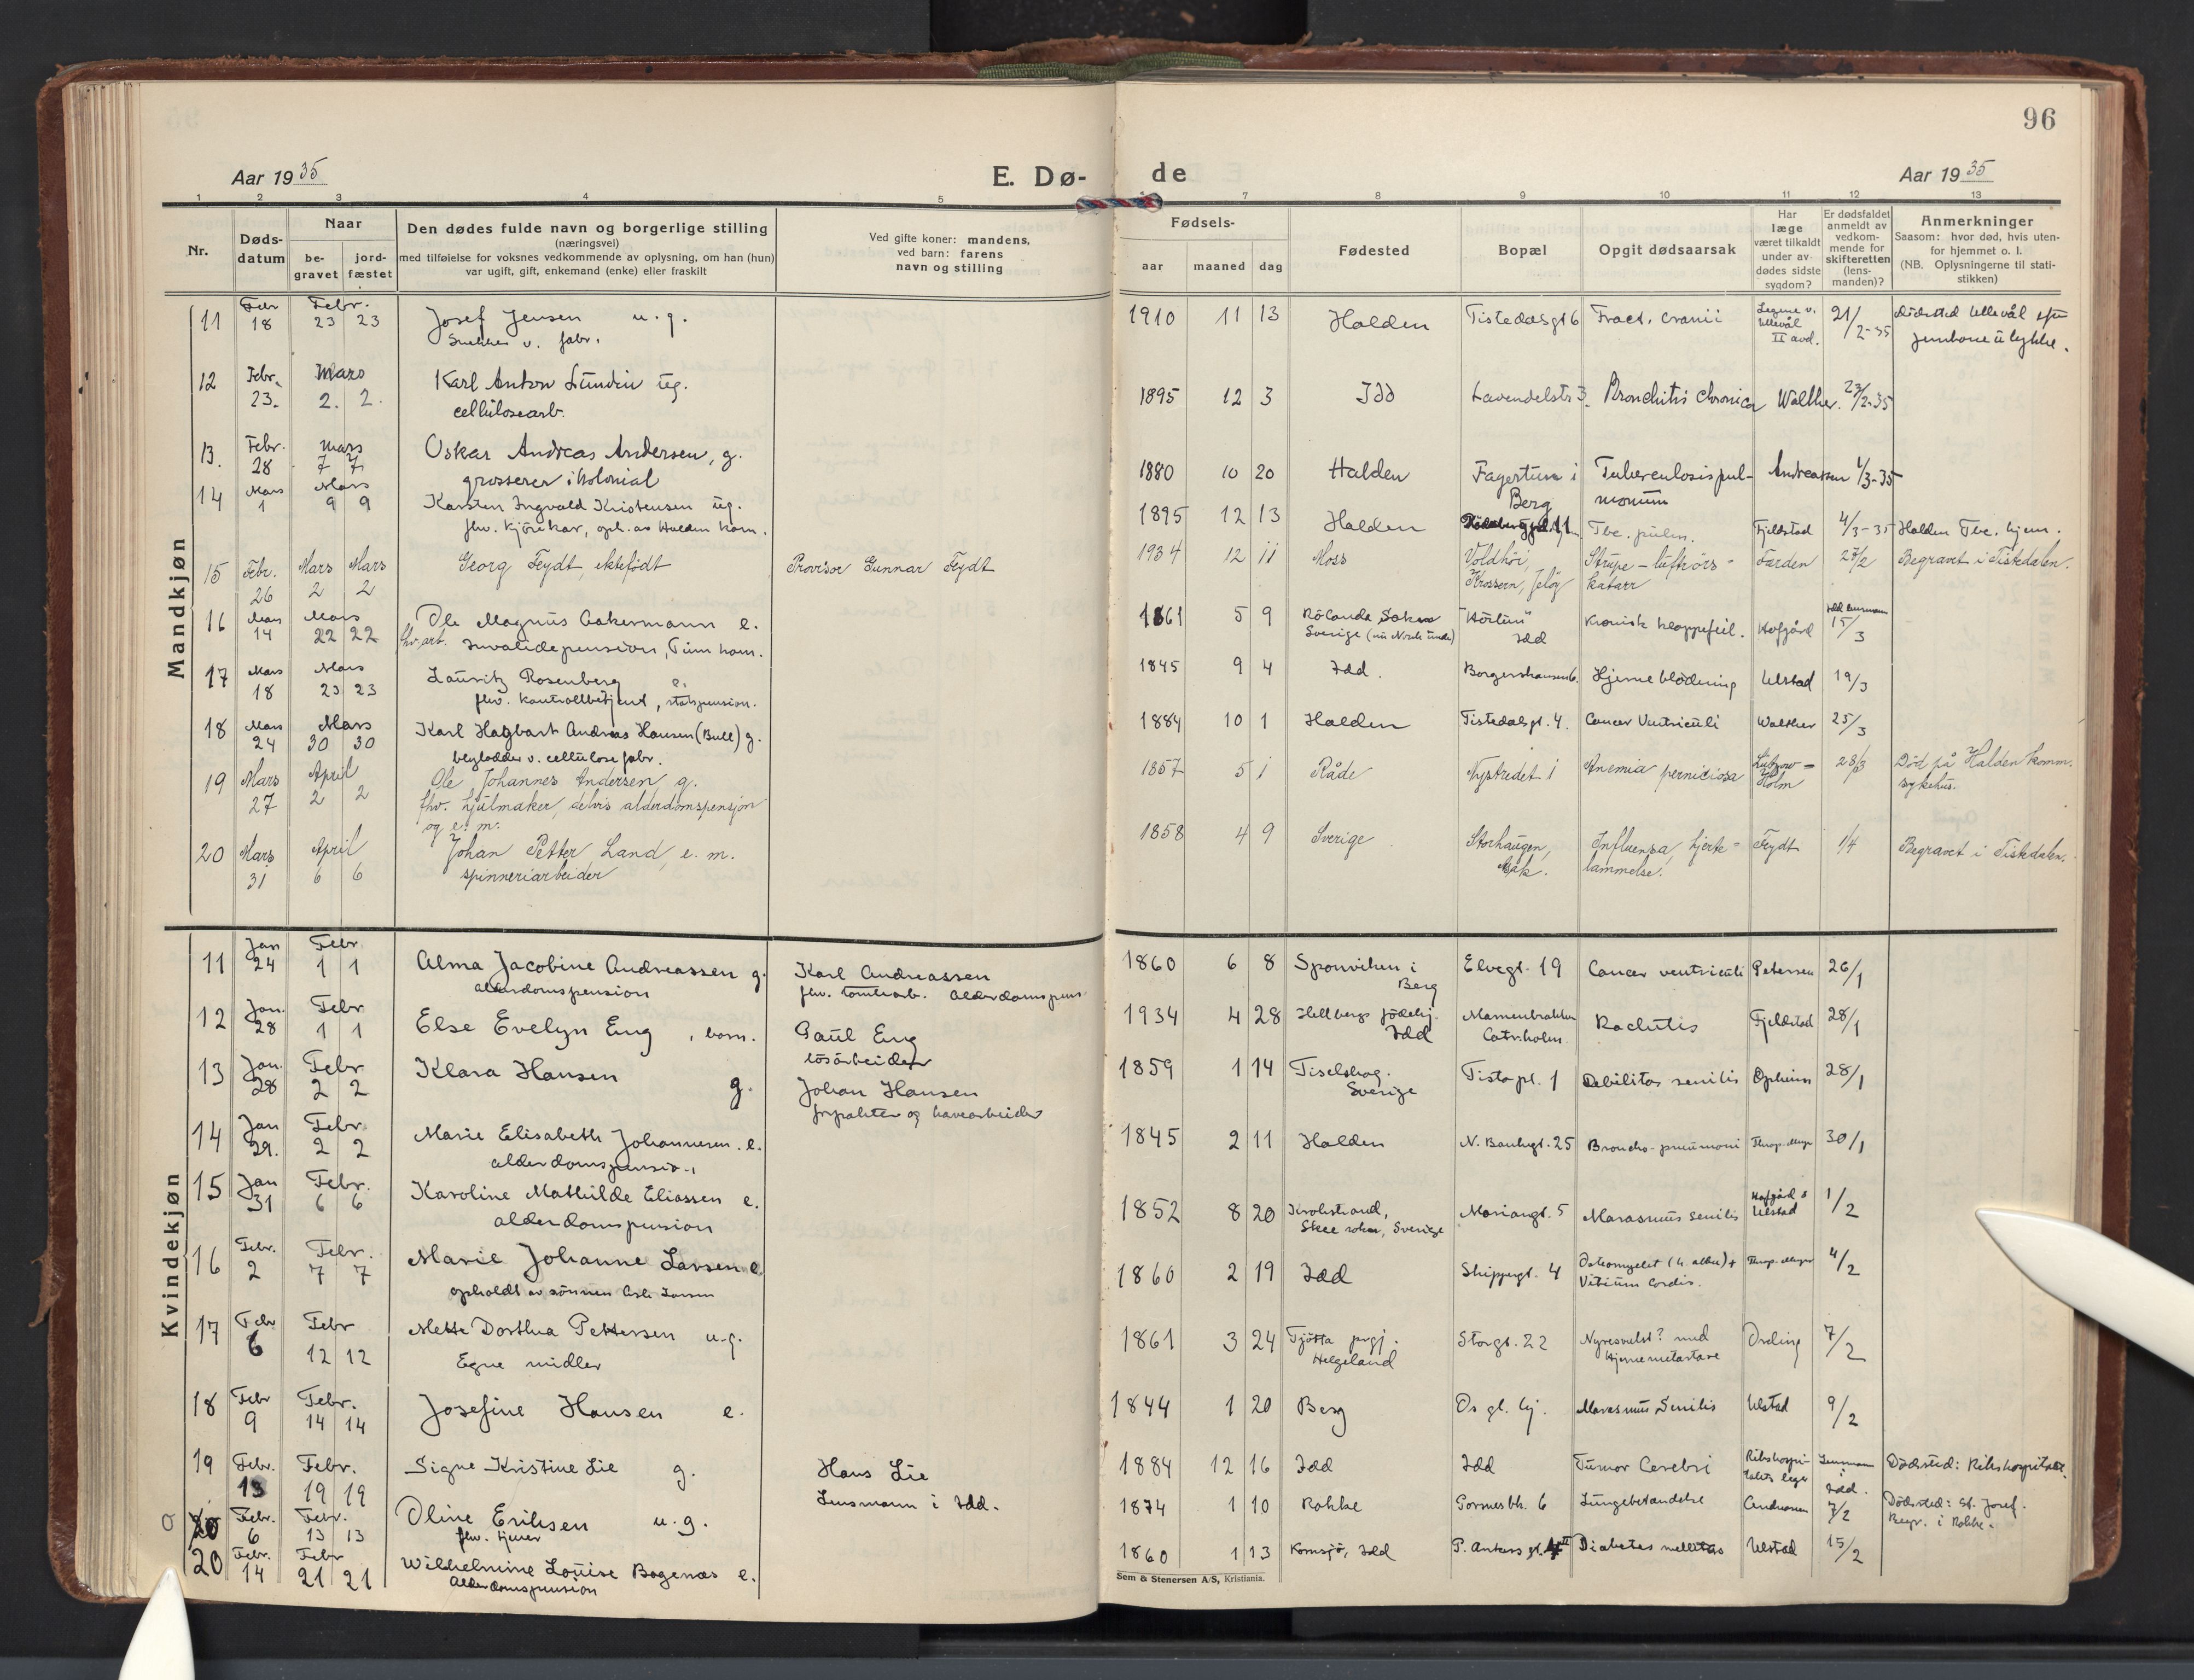 96
Aar 1935
E. Dø-
de
Aar 1935
1 2 3 4 5 7 8 9 10 11 12 13
Nr.
Døds-
datum
Naar
be-
gravet
jord-
fæstet
Den dødes fulde navn og borgerlige stilling
(næringsvei)
med tilføielse for voksnes vedkommende av oplysning, om han (hun)
var ugift, gift, enkemand (enke) eller fraskilt
Ved gifte koner: mandens,
ved barn: farens
navn og stilling
Fødsels-
aar maaned dag
Fødested
Bopæl
Opgit dødsaarsak
Har
læge
været tilkaldt
under av-
dødes sidste
sygdom?
Er dødsfaldet
anmeldt av
vedkom-
mende for
skifteretten
(lens-
manden)?
Anmerkninger
Saasom: hvor død, hvis uten-
for hjemmet o. l.
(NB. Oplysningerne til stati-
stikken)
Mandkjøn
11 Febr 18 Febr. 23 23 Josef Jensen u. g.
v. fabr.
1910 11 13 Halden Tistedalsgt 6 Fract. cranii Legene v. Ullevål II avd. 21/2-35 Dödssted Ullevål efter
jernbaneulykke.
12 Febr. 23. Mars 2. 2. Karl Anton Lundin ug.
cellulosearb.
1895 12 3 Idd Lavendelstr 3. Bronchitis chronica Walther. 23/2-35
13. Febr. 28 Mars 7 7 Oskar Andreas Andersen, g.
grosserer i kolonial
1880 10 20 Halden Fagertun i Berg Tuberculosis pul-
monum Andreassen 1/3-35
14 Mars 1 Mars 9 9 Karsten Ingvald Kristensen ug.
fhv. kjörekar, oph. av Halden kom.
1895 12 13 Halden Tbc. pulm. Fjeldstad 4/3-35 Halden Tbc. hjem.
15 Febr. 26 Mars 2 Mars 2 Georg Feydt, ektefödt Provisor Gunnar Feydt
1934 12 11 Moss Voldhöi, Krossern, Jelöy Strupe-luftrörs-
katarr Farden 27/2 Begravet i Tistedalen.
16 Mars 14 Mars 22 22 Ole Magnus Aakermann e.
fhv. arb. Invalidepension, Tune kom.
1861 5 9 Rölanda Soken
Sverige "Hörlun"
Idd Kronisk klappefeil. Hofgård 15/3
17 Mars 18 Mars 23 23 Lauritz Rosenberg e.
fhv. kontrollbetjent, statspension.
1845 9 4 Idd. Borgershausen 6. Hjerneblödning Ulstad 19/3
18 Mars 24 Mars 30 30 Karl Hagbart Andreas Hansen (Bull) g.
v. cellulosefabr.
1884 10 1 Halden Tistedalsgt. 4. Cancer Ventriculi Walther 25/3
19 Mars 27 April 2 2 Ole Johannes Andersen, g.
fhv. hjulmaker, delvis alderdomspensjon
og e. m.
1857 5 1 Råde Nystredet 1 Anemia perniciosa Lützow-
Holm 28/3 Död på Halden komm.
sykehus.
20 Mars 31 April 6 6 Johan Petter Land, e. m.
spinneriarbeider
1858 4 9 Sverige Storhaugen,
Asak. Influensa, hjerte-
lammelse. Feydt 1/4 Begravet i Tistedalen.
Kvindekjøn
11 Jan 24 Febr 1 1 Alma Jacobine Andreassen g.
alderdomspension
Karl Andreassen
fhv. tomtearb. Alderdomspens.
1860 6 8 Sponviken i
Berg Elvegt. 19 Cancer ventriculi Petersen 26/1
12 Jan. 28 Febr 1 1 Else Evelyn Eng, barn.
Paul Eng
lösarbeider
1934 4 28 Hellbergs födehj.
Idd
Catrholm. Rachitis Fjeldstad 28/1
13 Jan. 28 Febr 2 2 Klara Hansen g.
Johan Hansen
og havearbeider
1859 1 14 Tiselskog.
Sverige Tistapl. 1 Debilitas senilis Opheim 28/1
14 Jan 29. Febr. 2 2 Marie Elisabeth Johannesen. e.
alderdomspension
1845 2 11 Halden N. Bankgt. 25 Broncho-pneumoni 30/1
15 Jan 31 Febr. 6 6 Karoline Mathilde Eliassen e.
alderdomspension
1852 8 20 Krokstrand,
Skee soken, Sverige Mariangt. 5 Marasmus senilis Hofgård &
Ulstad 1/2
16 Febr. 2 Febr. 7 7 Marie Johanne Larsen e.
opholdt av sönnen Larsen
1860 2 19 Idd Skippergt. 4
Vitium Cordis. 4/2
17 Febr 6 Febr 12 12 Mette Dorthea Pettersen u.g.
Egne midler
1861 3 24 Tjötta prgj.
Helgeland Storgt. 22 Nyresvulst? med
Hjernemetastase Ording 7/2
18 Febr 9 Febr. 14 14 Josefine Hansen e.
1844 1 20 Berg Os gl. hj. Marasmus Senilis Ulstad 9/2
19 Febr. 13 Febr. 19 19 Signe Kristine Lie g.
Hans Lie
Lensmann i Idd.
1884 12 16 Idd Idd Tumor Cerebri Rikshospi-
talets leger Lensmann
i
Idd. Dödssted: Rikshospitalet.
0 20 Febr. 6 Febr. 13 13 Oline Eriksen u. g.
fhv. tjener
1874 1 10 Rokke Gormsbk. 6 Lungebetendelse Andreassen 7/2 Dödssted: St. Josef.
Begr. i Rokke.
20 Febr. 14 Febr 21 21 Wilhelmine Louise Bogenæs e.
Alderdomspension
1860 1 13 Kornsjö, Idd P. Ankers gt. 4 II Diabetes mellitus Ulstad 15/2
Sem & Stenersen A/S, Kristiania.